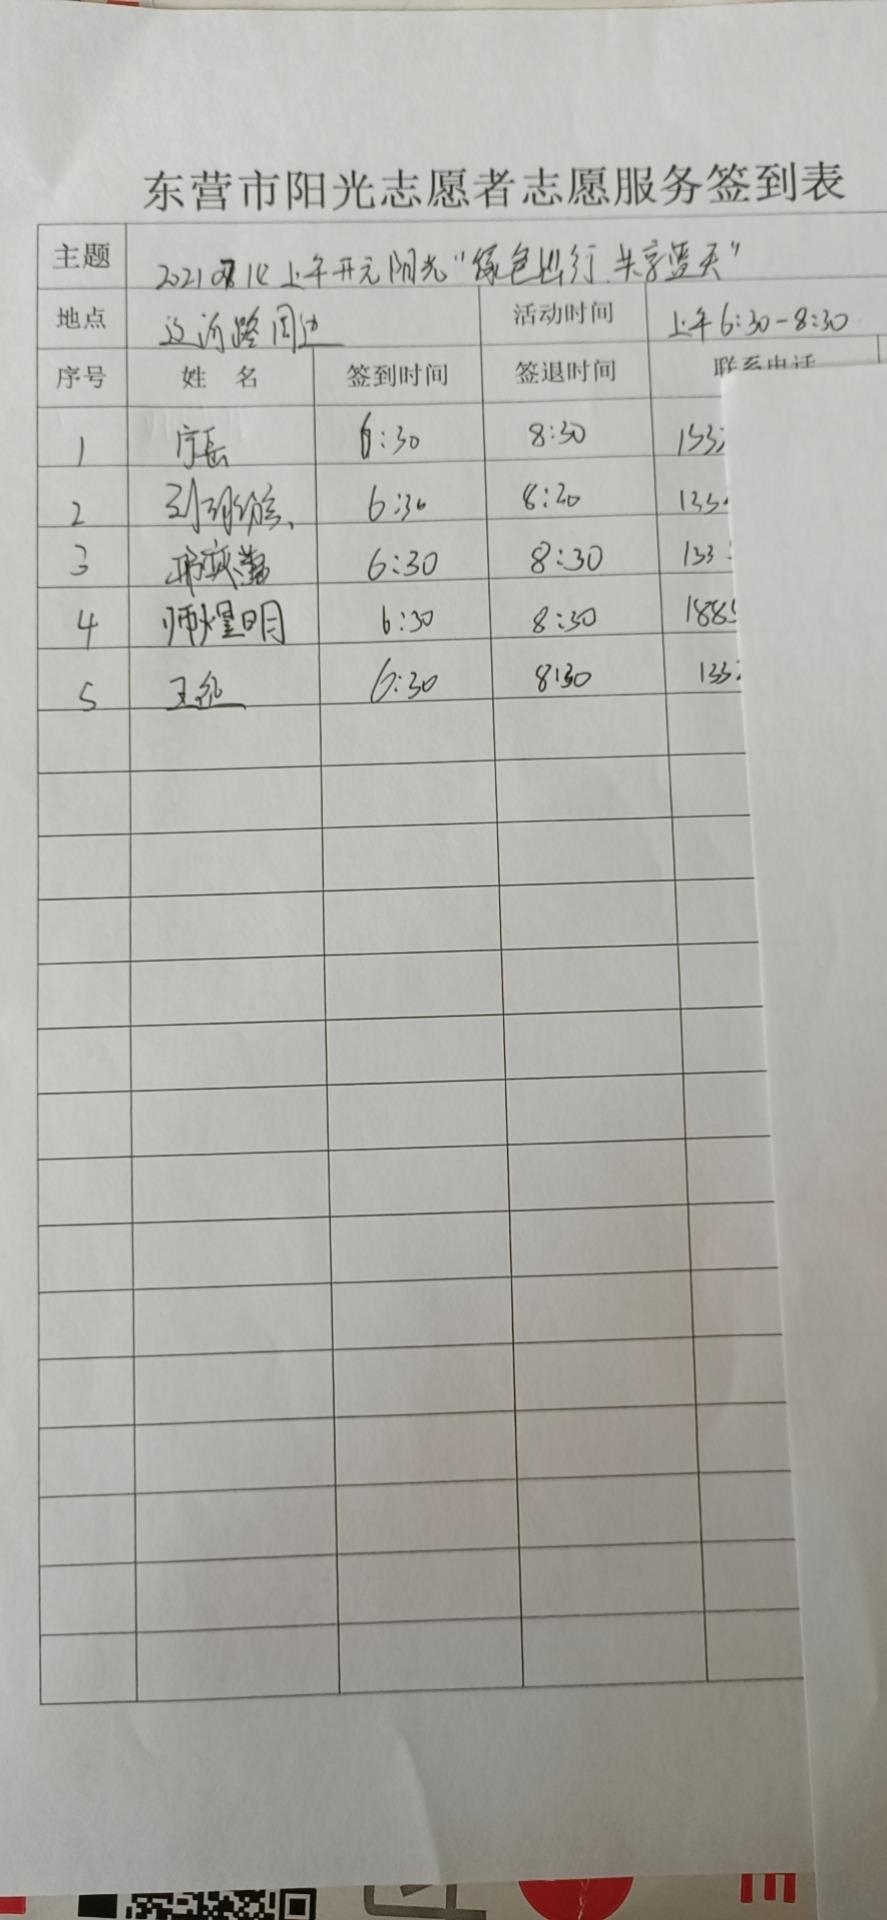 东营市阳光志愿者志愿服务签到表
主题 20210714上午开元阳光"绿色出行.共享蓝天"
地点 路周边 活动时间 上午6:30-8:30
序号 姓 名 签到时间 签退时间 联系电话
1 6:30 8:30 133
2 6:30 8:30 133
3 6:30 8:30 133
4 师煜明 6:30 8:30 188
5 王 6:30 8:30 133